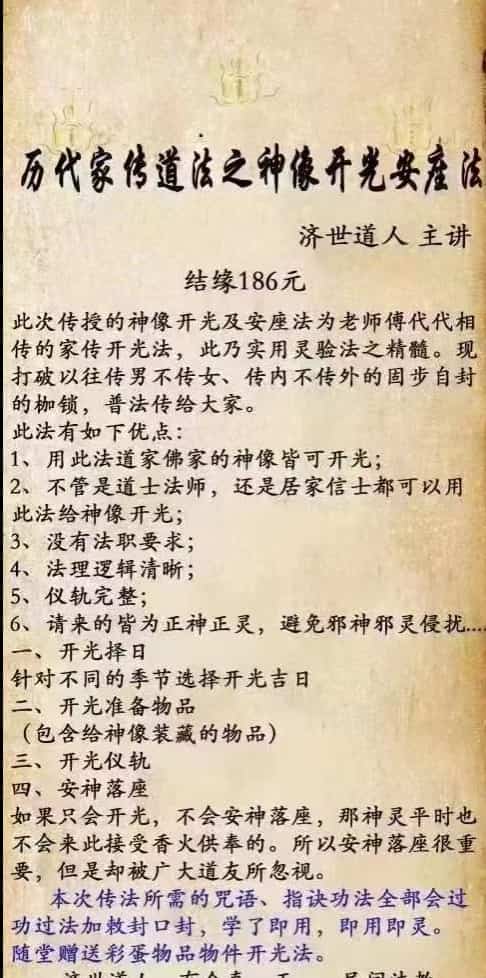 历代家传道法之神像开光安座法
济世道人 主讲
结缘186元
此次传授的神像开光及安座法为老师傅代代相
传的家传开光法，此乃实用灵验法之精髓。现
打破以往传男不传女、传内不传外的固步自封
的枷锁，普法传给大家。
此法有如下优点：
1、用此法道家佛家的神像皆可开光；
2、不管是道士法师，还是居家信士都可以用
此法给神像开光；
3、没有法职要求；
4、法理逻辑清晰；
5、仪轨完整；
6、请来的皆为正神正灵，避免邪神邪灵侵扰....
一、开光择日
针对不同的季节选择开光吉日
二、开光准备物品
（包含给神像装藏的物品）
三、开光仪轨
四、安神落座
如果只会开光，不会安神落座，那神灵平时也
不会来此接受香火供奉的。所以安神落座很重
要，但是却被广大道友所忽视。
本次传法所需的咒语、指诀功法全部会过
功过法加敕封口封，学了即用，即用即灵。
随堂赠送彩蛋物品物件开光法。